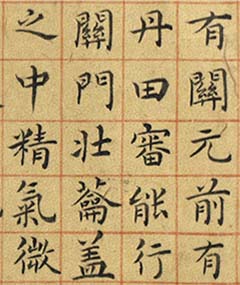 有關元前有
丹田審能行
關門壯籥盖
之中精氣微